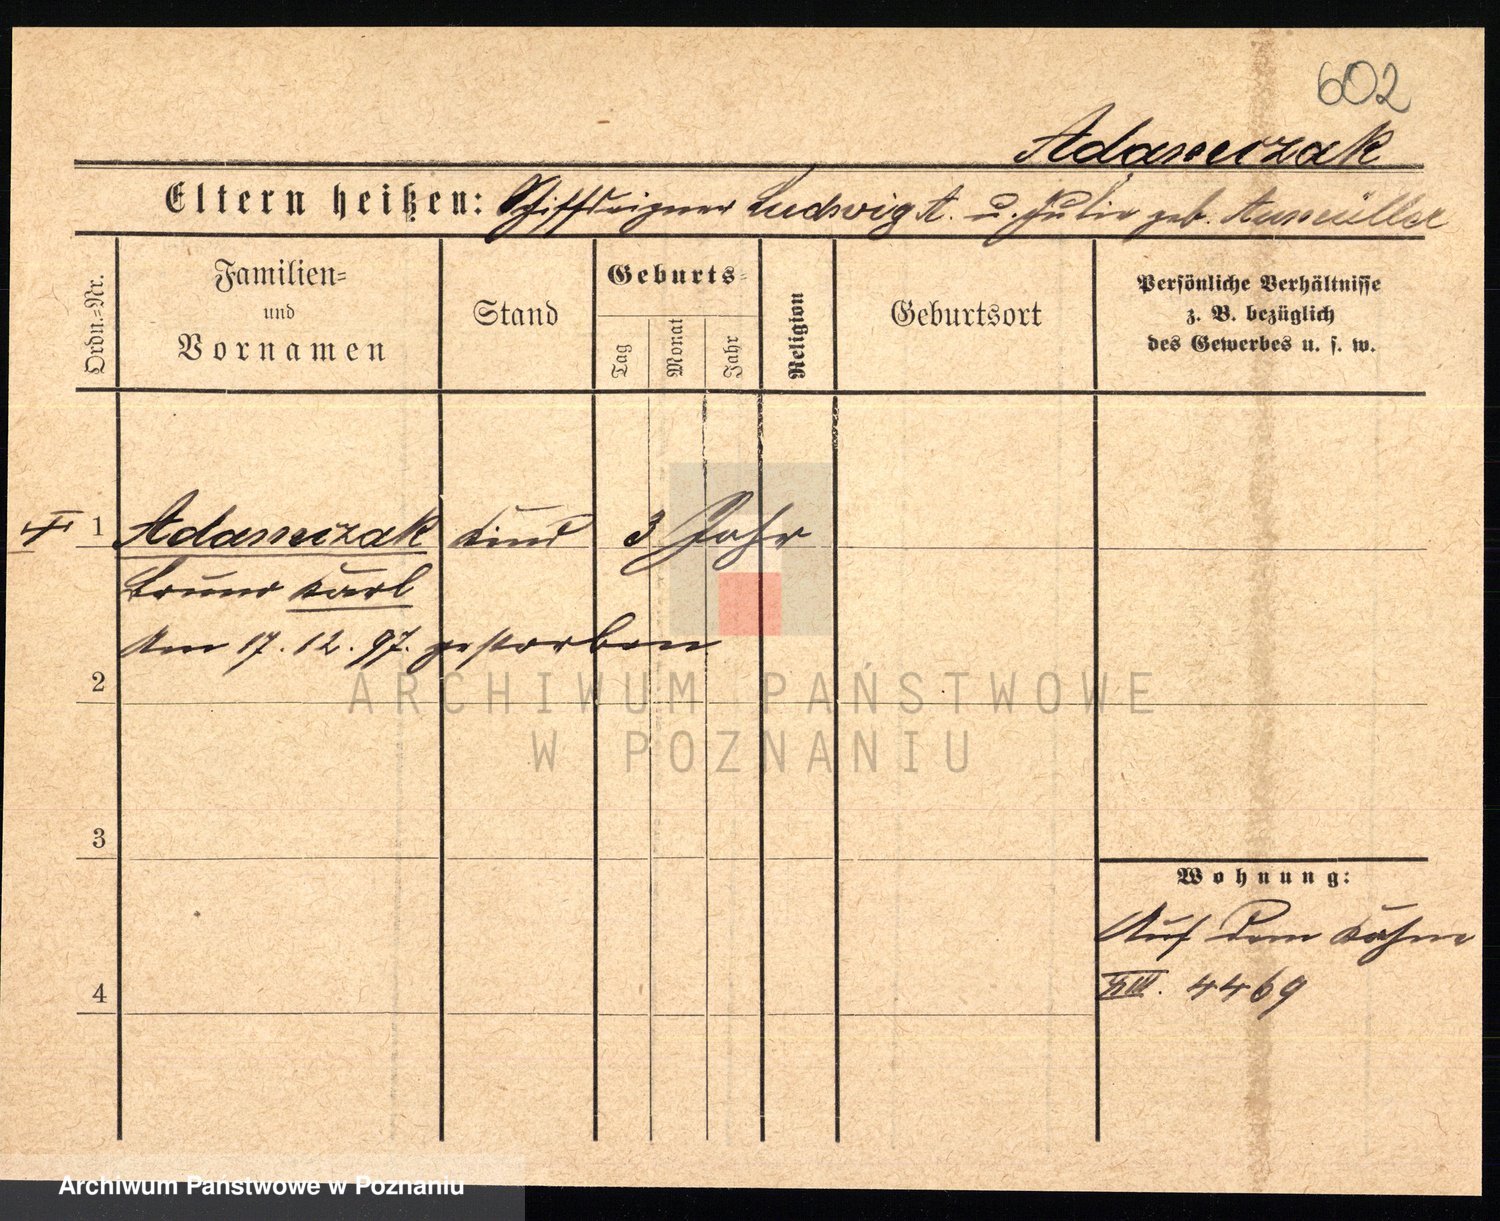 602
Adamczak
Eltern heißen: Schiffseigner Ludwig A. u. Julie geb.
Ordn.-Nr.
Familien- und Vornamen
Stand
Geburts-
Tag
Monat
Jahr
Religion
Geburtsort
Persönliche Verhältnisse
z. B. bezüglich
des Gewerbes u. s. w.
1 Adamczak Kind 3 Jahr
Bruno Karl
Am 17. 12. 97. gestorben
2
ARCHIWUM PAŃSTWOWE
W POZNANIU
3
Wohnung:
Auf dem Kahne
XIII. 4469
4
Archiwum Państwowe w Poznaniu